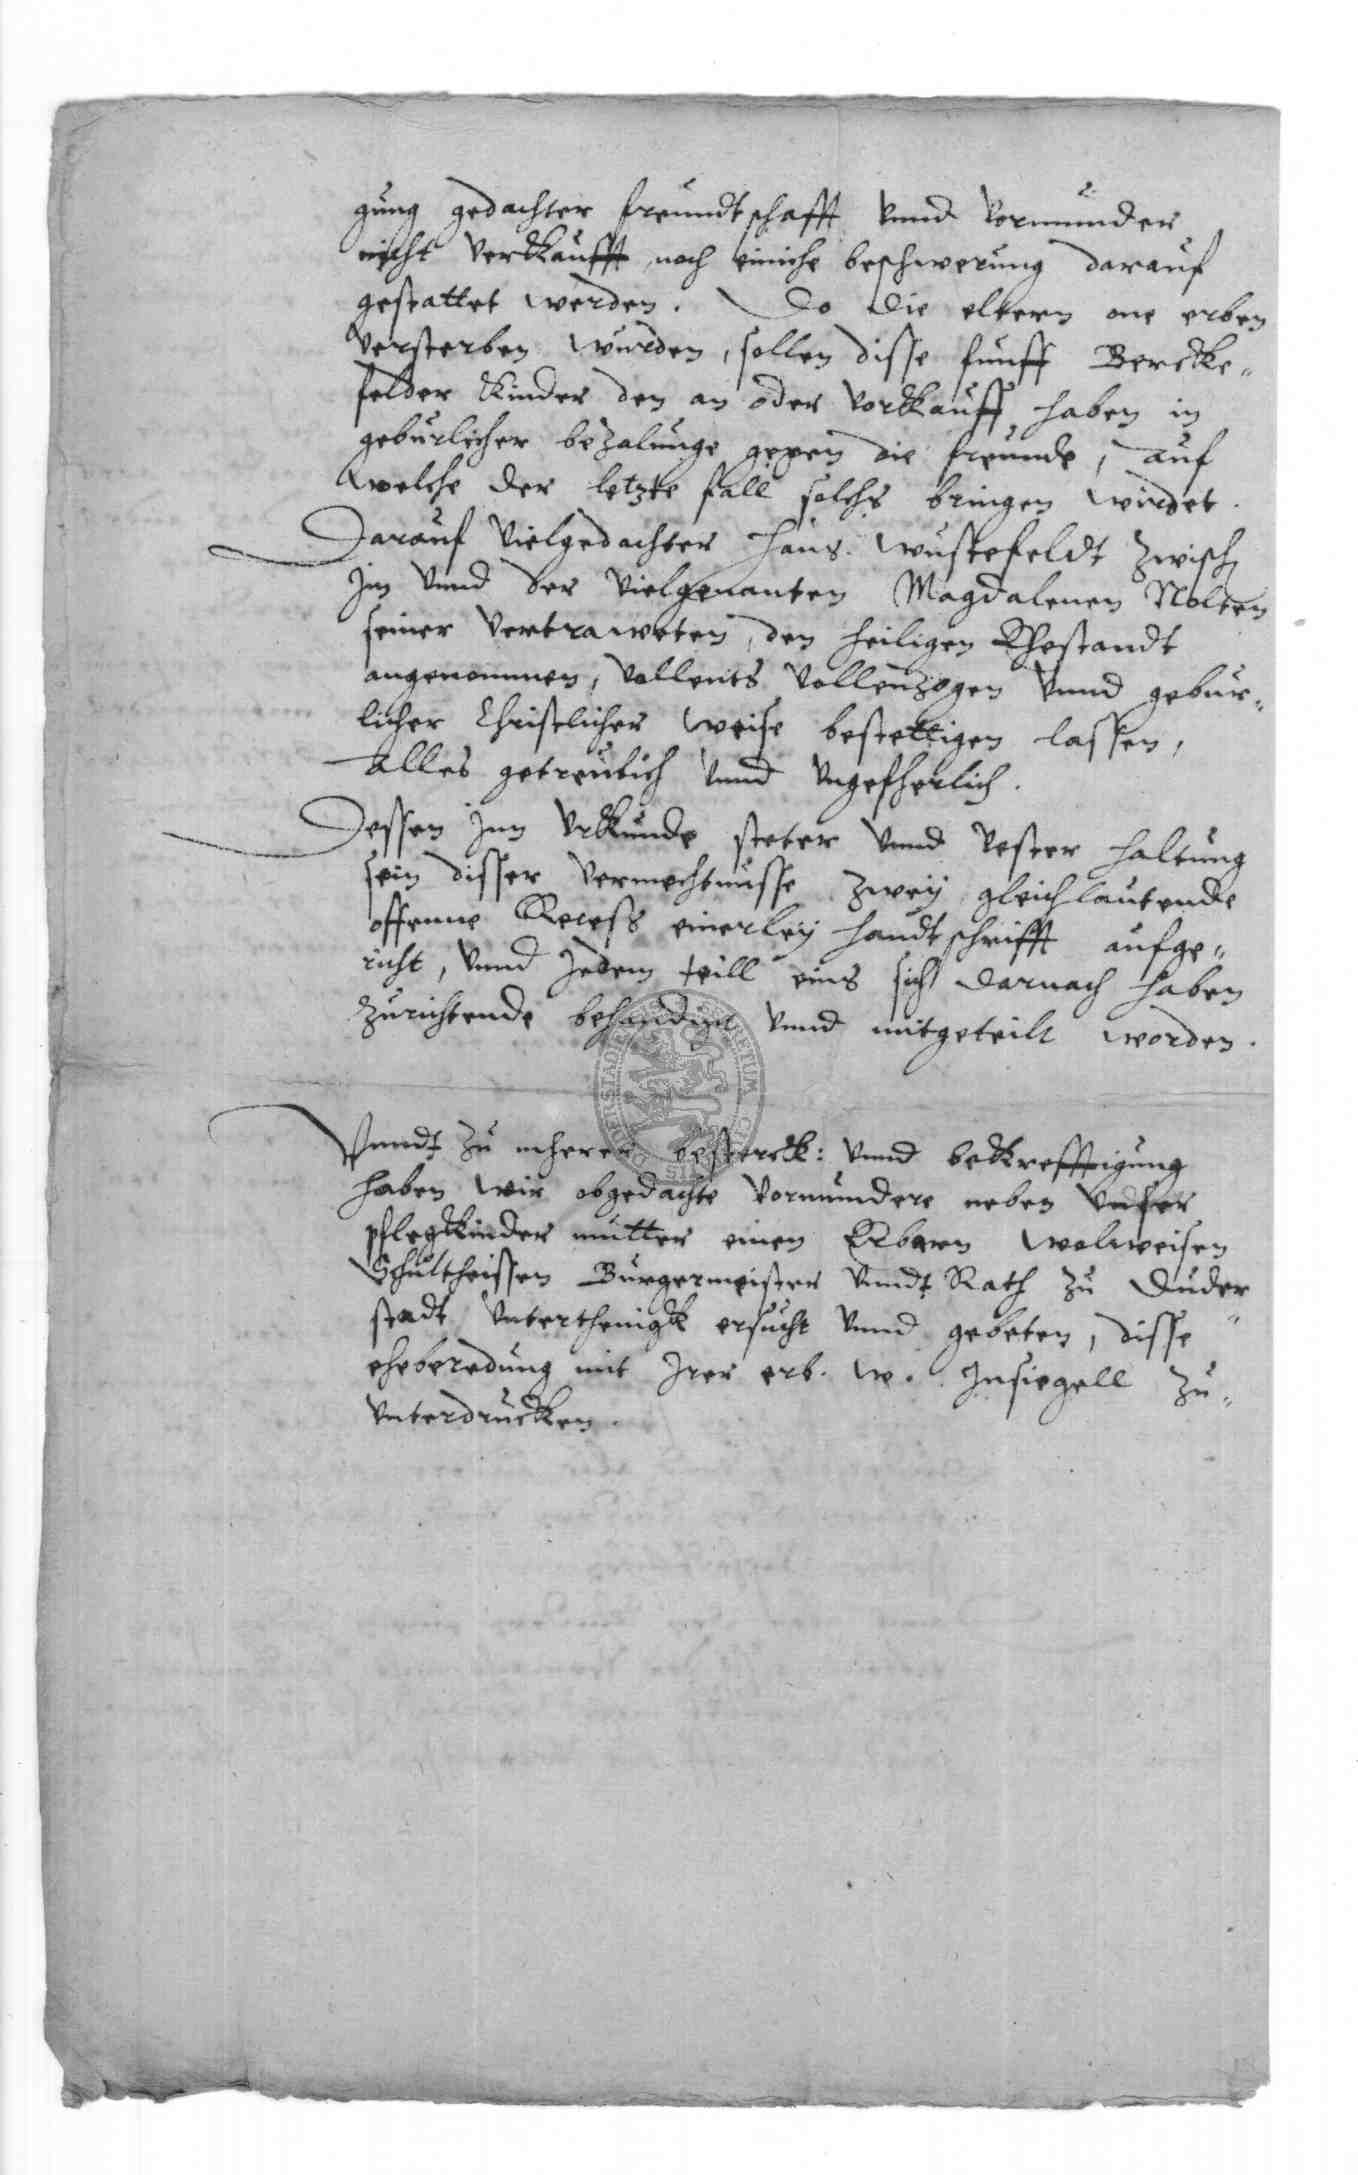 gung gedachter freundtschafft vnnd vormunder
nicht verkaufft noch einiche beschwerung darauf
gestattet werden. Do die eltern one erben
versterben wurden, sollen disse funff Bercke„
felder kinder den an oder vorkauff haben in
geburlicher bezalunge gegen die freunde, auf
welche der letzte fall solchs bringen wirdet.
Darauf vielgedachter Hans Wustefeldt zwisch
Jm vnnd der vielgenanten Magdalenen Nolten
seiner vertraweten, den heiligen Ehestandt
angenommen, vollents vollenzogen vnnd gebur„
licher Christlicher weise bestettigen lassen,
Alles getreulich vnnd vngefherlich.
Dessen Jnn vrkunde steter vnnd vester haltung
sein disser vermechtnusse zweÿ gleichlautende
offenne Recess einerleÿ handtschrifft aufge„
richt, vnnd Jedem teill eins sich darnach haben
zurichtende behandigt vnnd mitgeteilt worden.
Vnndt zu mherer besterck: vnnd bekrefftigung
haben wir obgedachte vormundere neben vnser
pflegkinder mutter einen Erbarn wolweisen
Schultheissen Burgermeister vnndt Rath zu Duder„
stadt vnterthenigk ersucht vnnd gebeten, disse
eheberedung mit Jrer erb. w. Jnsiegell zu„
vnterdrucken.